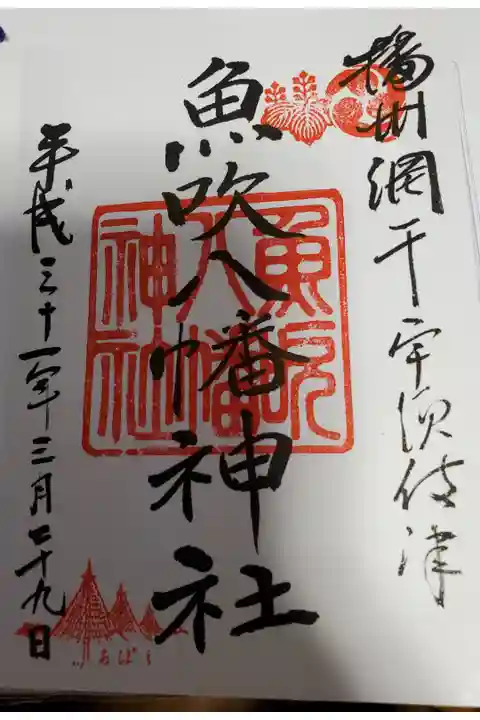 播州網干宇須伎津
魚吹八幡神社
魚吹八幡神社
平成三十一年三月二十九日
あばし